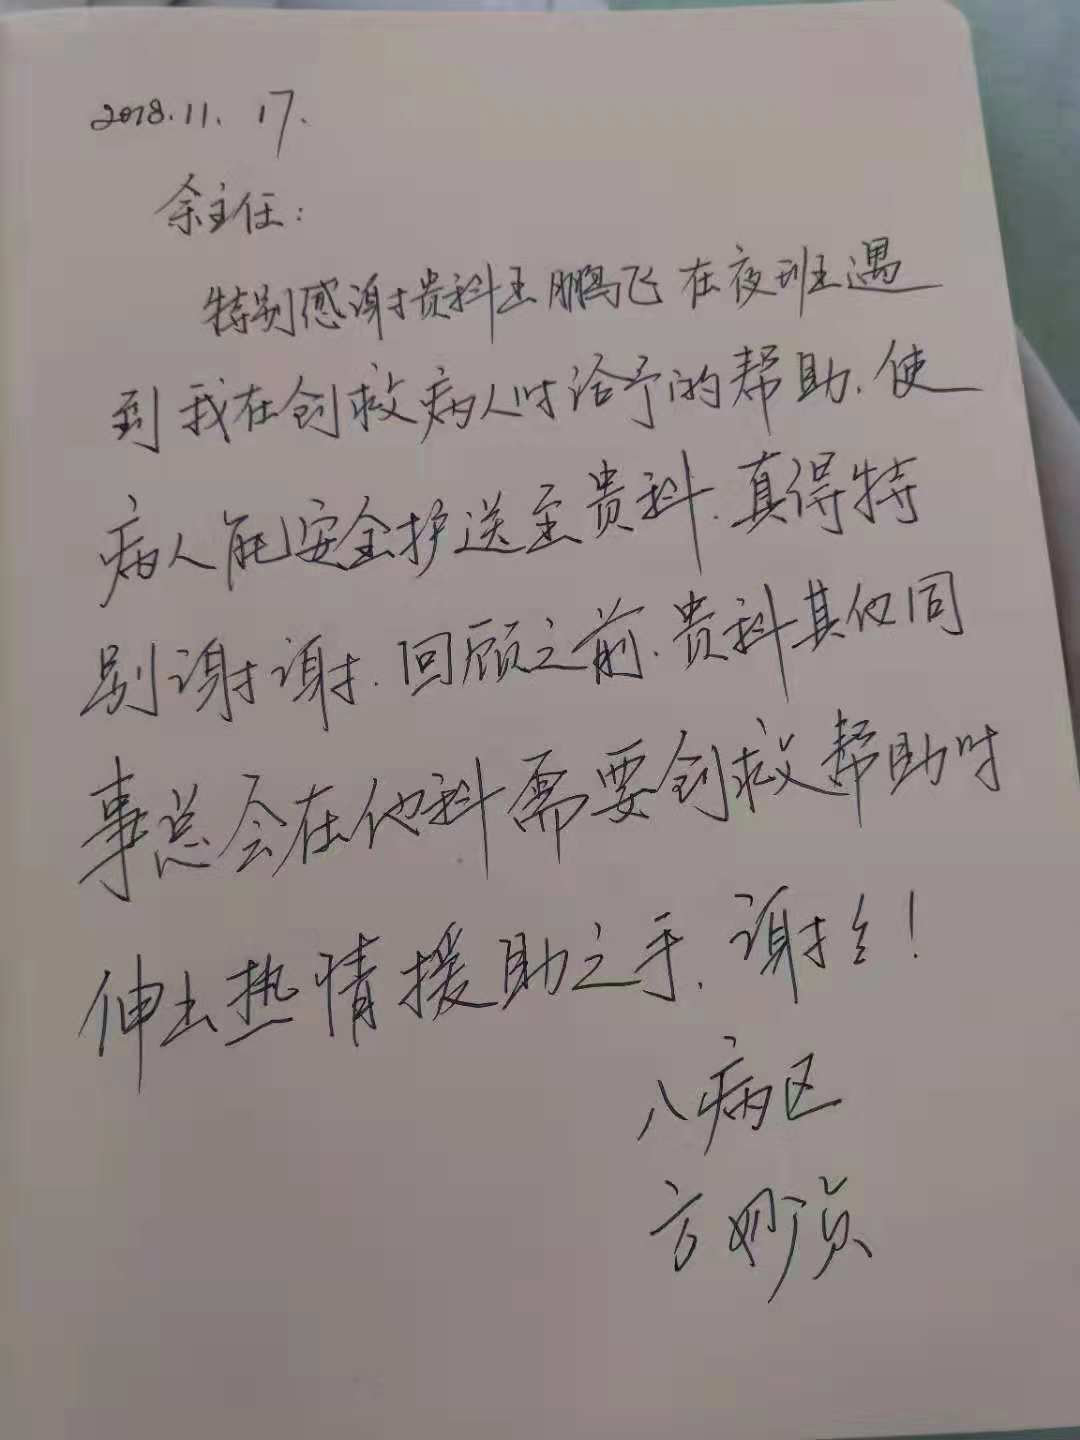 2018.11.17.
余主任:
特别感谢贵科王鹏飞在夜班遇
到我在创救病人时给予的帮助.使
病人能安全护送至贵科.真得特
别谢谢.回顾之前.贵科其他同
事总会在他科需要创救帮助时
伸出热情援助之手.谢谢!
八病区
方妙贞